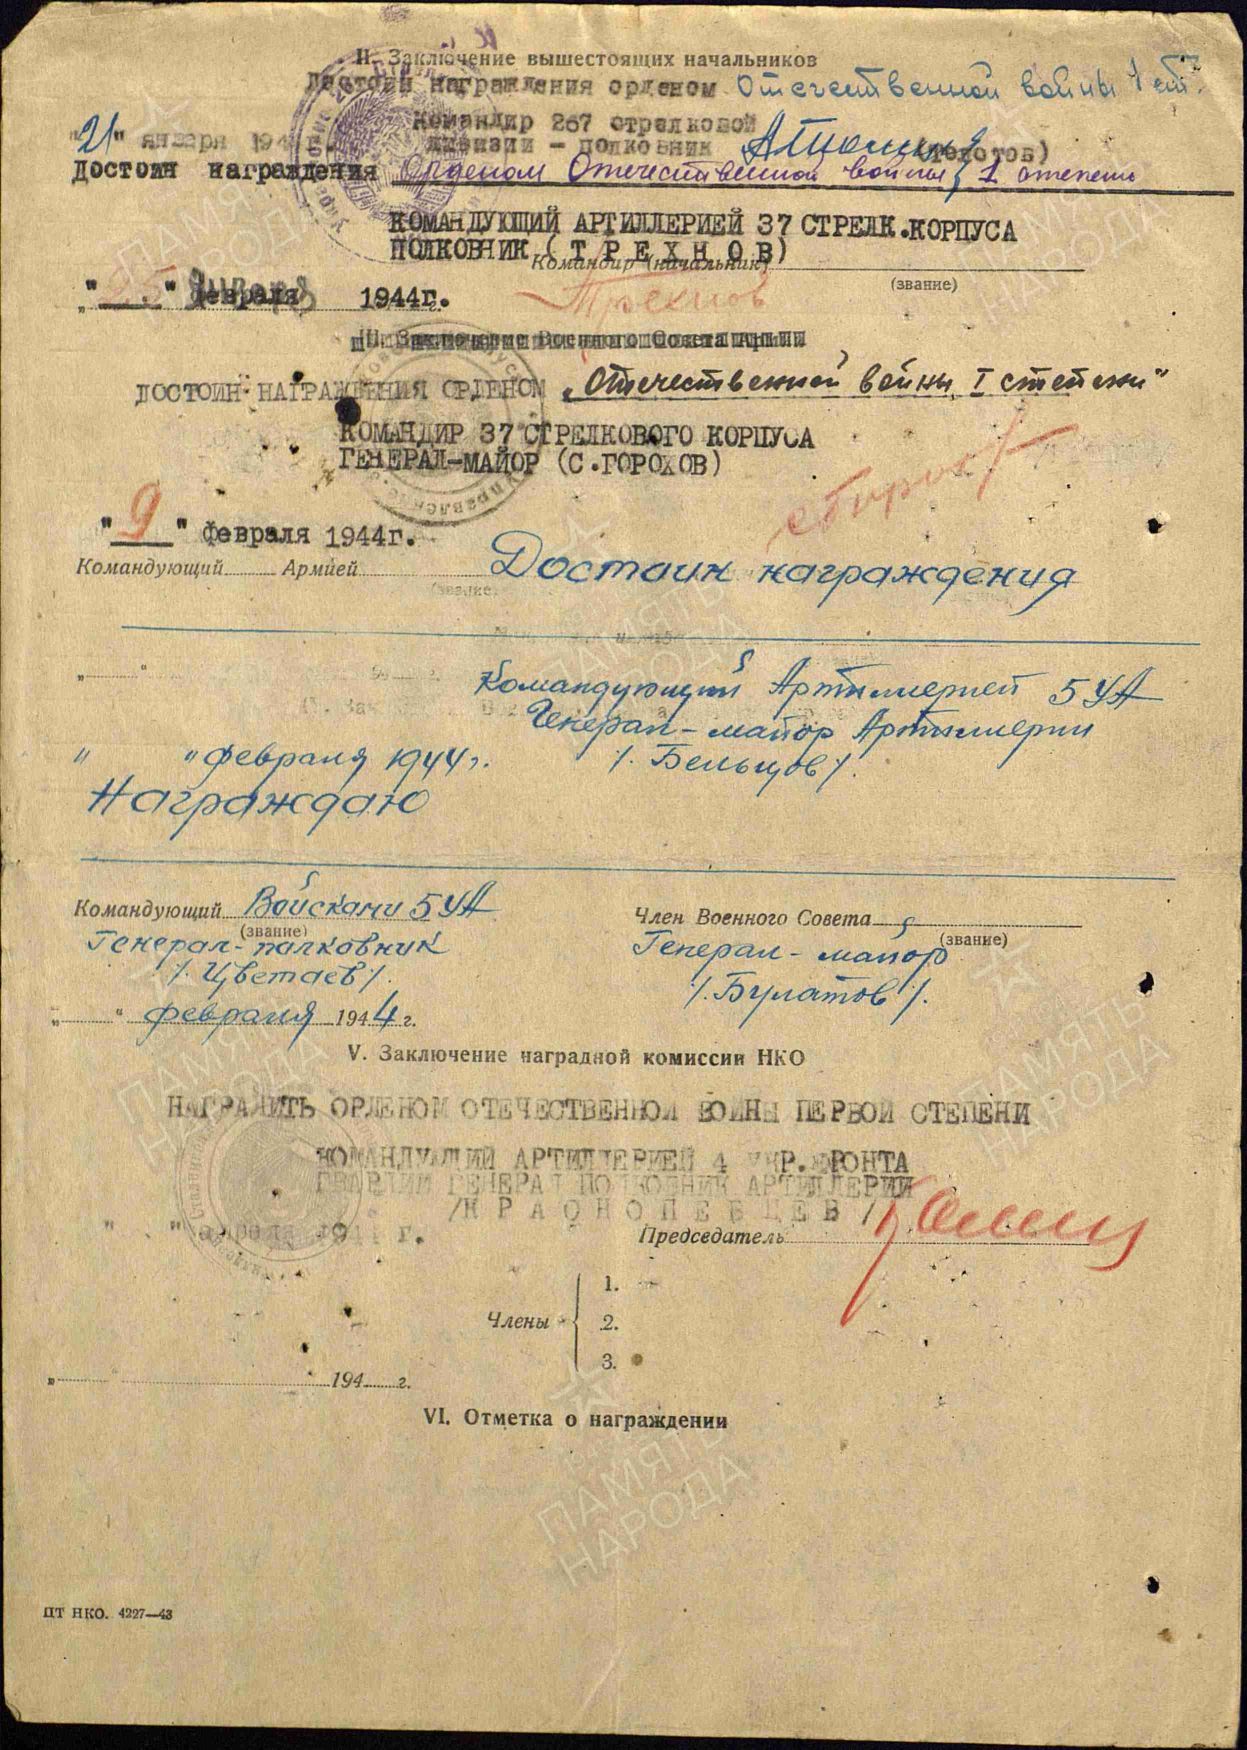 II. Заключение вышестоящих начальников
Достоин награждения орденом Отечественной войны 1 ст.
Командир 267 стрелковой
"21" января 194
дивизии – полковник
Достоин награждения Орденом Отечественной войны 1 степени
КОМАНДУЮЩИЙ АРТИЛЛЕРИЕЙ 37 СТРЕЛК.КОРПУСА
ПОЛКОВНИК (ТРЕХНОВ)
Командир (начальник)
(звание)
" " февраля 1944г.
Трехнов
III. Заключение Военного Совета Армии
ДОСТОИН НАГРАЖДЕНИЯ ОРДЕНОМ „Отечественной войны I степени"
КОМАНДИР 37 СТРЕЛКОВОГО КОРПУСА
ГЕНЕРАЛ-МАЙОР (С.ГОРОХОВ)
"9" февраля 1944г.
Командующий Армией
(звание)
Достоин награждения
Командующий Артиллерией 5 УА
Генерал-майор Артиллерии
" " февраля 1944г. /. Бельцов /.
Награждаю
Командующий Войсками 5 УА
(звание)
Генерал-полковник
/. Цветаев /.
„ " февраля 1944 г.
Член Военного Совета
(звание)
Генерал-майор
/. Булатов /.
V. Заключение наградной комиссии НКО
НАГРАДИТЬ ОРДЕНОМ ОТЕЧЕСТВЕННОЙ ВОЙНЫ ПЕРВОЙ СТЕПЕНИ
КОМАНДУЮЩИЙ АРТИЛЛЕРИЕЙ 4 УКР.ФРОНТА
ГВАРДИИ ГЕНЕРАЛ ПОЛКОВНИК АРТИЛЛЕРИИ
/КРАСНОПЕВЦЕВ/
" " апреля 194 г.
Председатель
Члены
1.
2.
3.
„ " 194 г.
VI. Отметка о награждении
ЦТ НКО. 4227—43
ПАМЯТЬ
НАРОДА